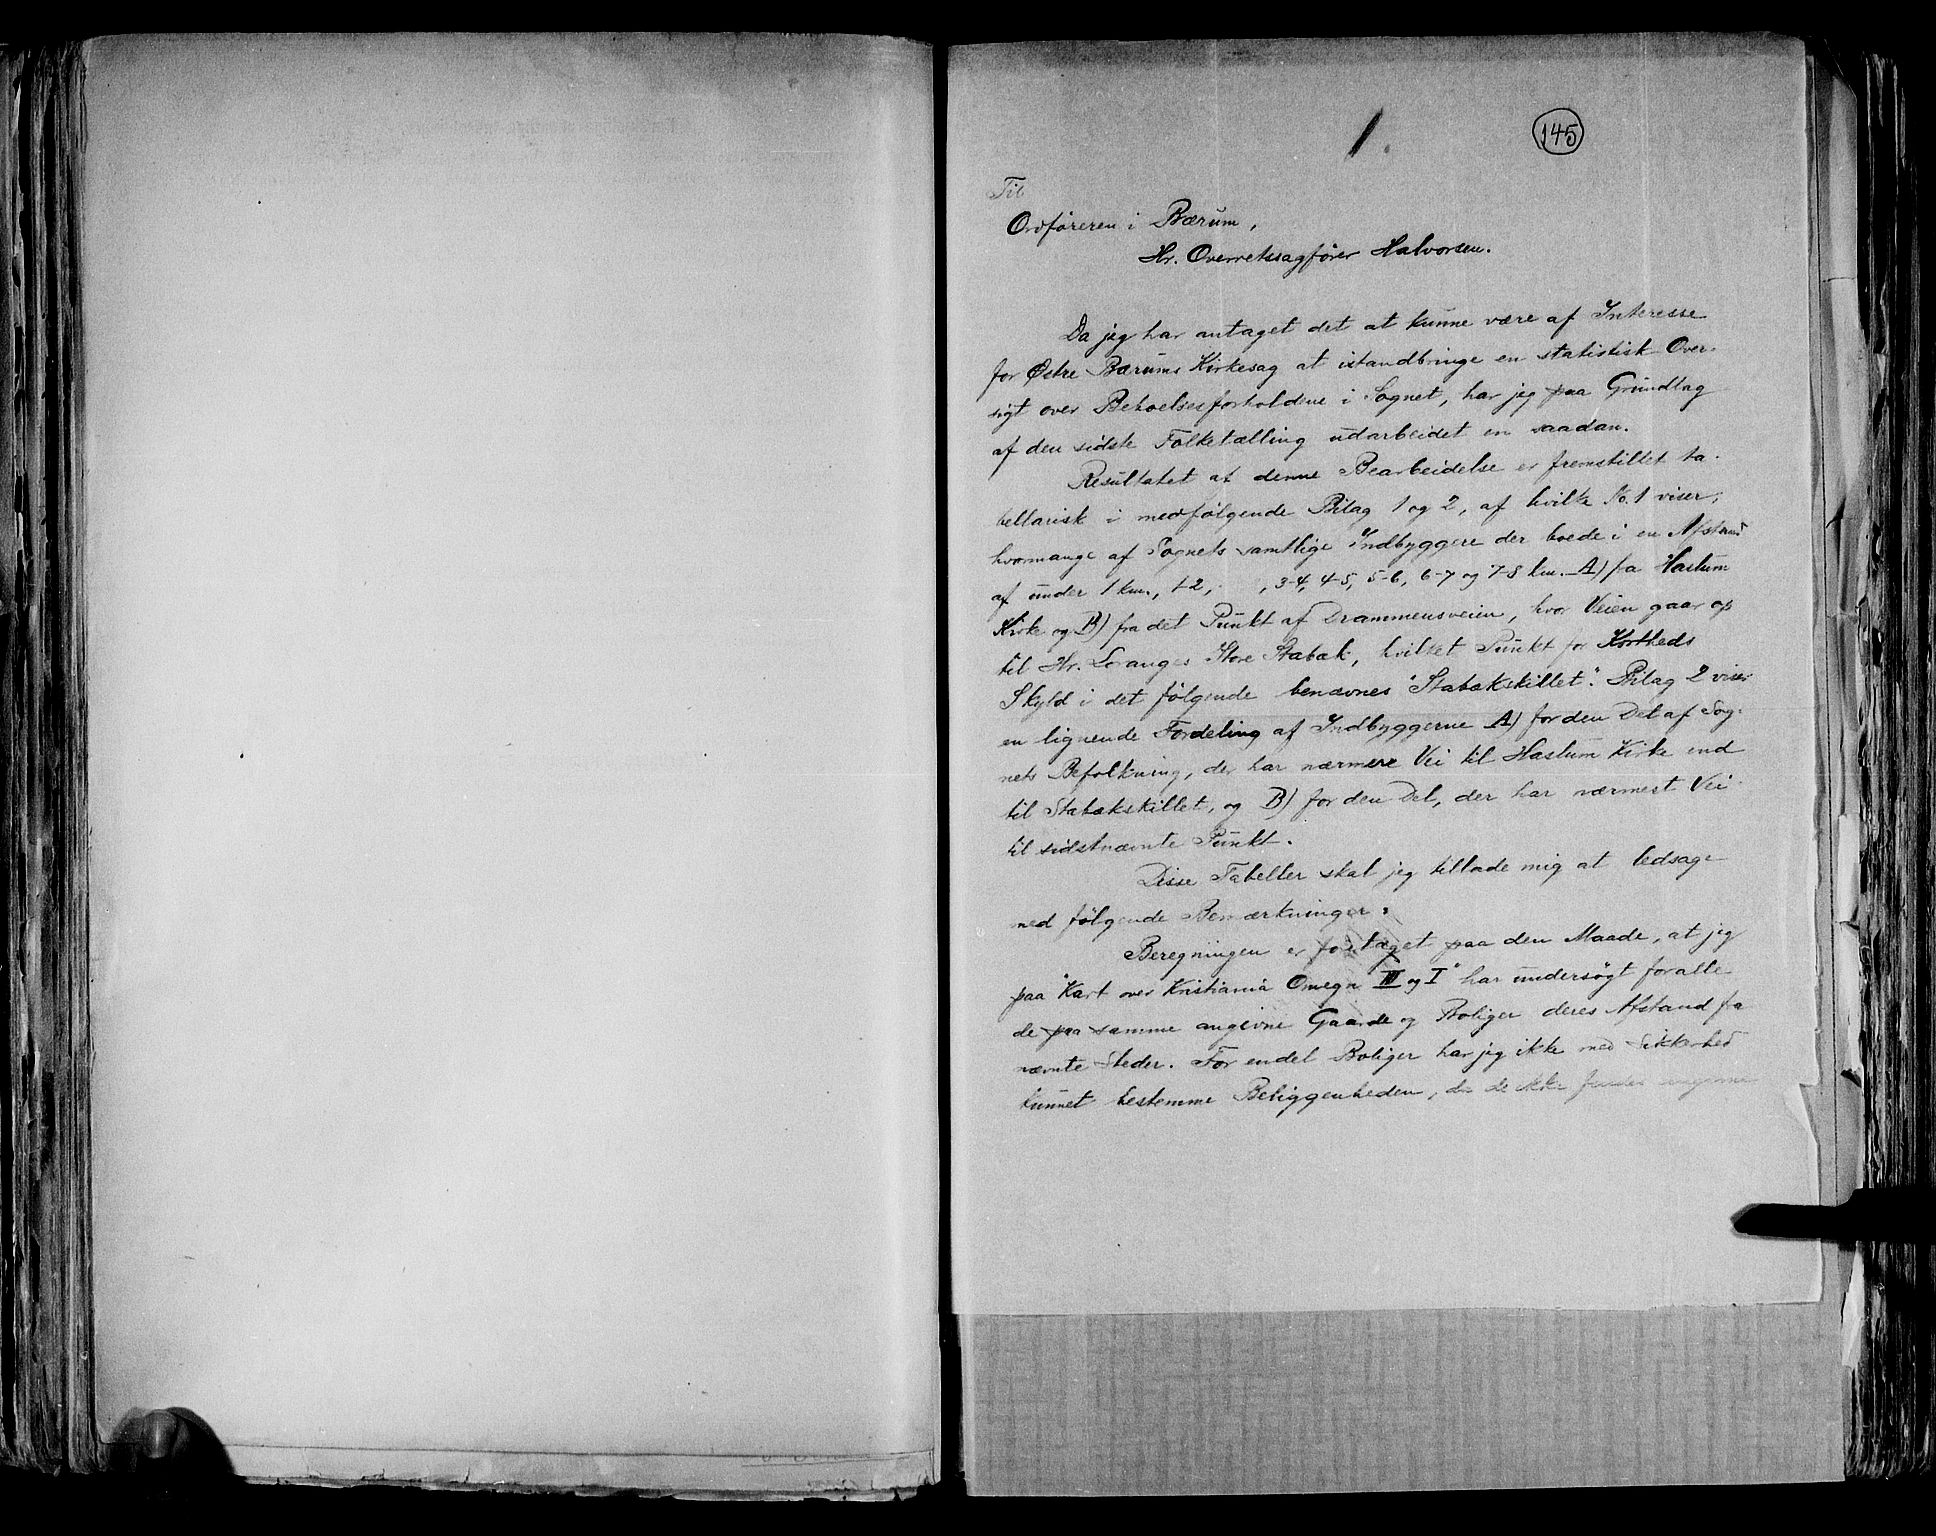 1.
145
Til
Ordføreren i Bærum,
Hr. Overretssagfører Halvorsen.
Da jeg har antaget det at kunne være af Interesse
for Østre Bærums Kirkesag at istandbringe en statistisk Over-
sigt over Beboelsesforholdene i Sognet, har jeg paa Grundlag
af den sidste Folketælling udarbeidet en saadan.
Resultatet af denne Bearbeidelse er fremstillet ta-
bellarisk i medfølgende Bilag 1 og 2, af hvilke No. 1 viser,
hvormange af Sognets samtlige Indbyggere der boede i en Afstand
af under 1 km., 1-2, , 3-4, 4-5, 5-6, 6-7 og 7-8 km. A) fra Haslum
Kirke og B) fra det Punkt af Drammensveien, hvor Veien gaar op
til Hr. Loranges Store Stabæk, hvilket Punkt for Kortheds
Skyld i det følgende benævnes "Stabækskillet". Bilag 2 viser
en lignende Fordeling af Indbyggerne A) for den Del af Sog-
nets Befolkning, der har nærmere Vei til Haslum Kirke end
til Stabækskillet, og B) for den Del, der har nærmest Vei
til sidstnævnte Punkt.
Disse Tabeller skal jeg tillade mig at ledsage
med følgende Bemærkninger:
Beregningen er foretaget paa den Maade, at jeg
paa "Kart over Kristiania Omegn III og I" har undersøgt for alle
de paa samme angivne Gaarde og Boliger deres Afstand fra
nævnte Steder. For endel Boliger har jeg ikke med Sikkerhed
kunnet bestemme Beliggenheden, da de ikke findes angivne